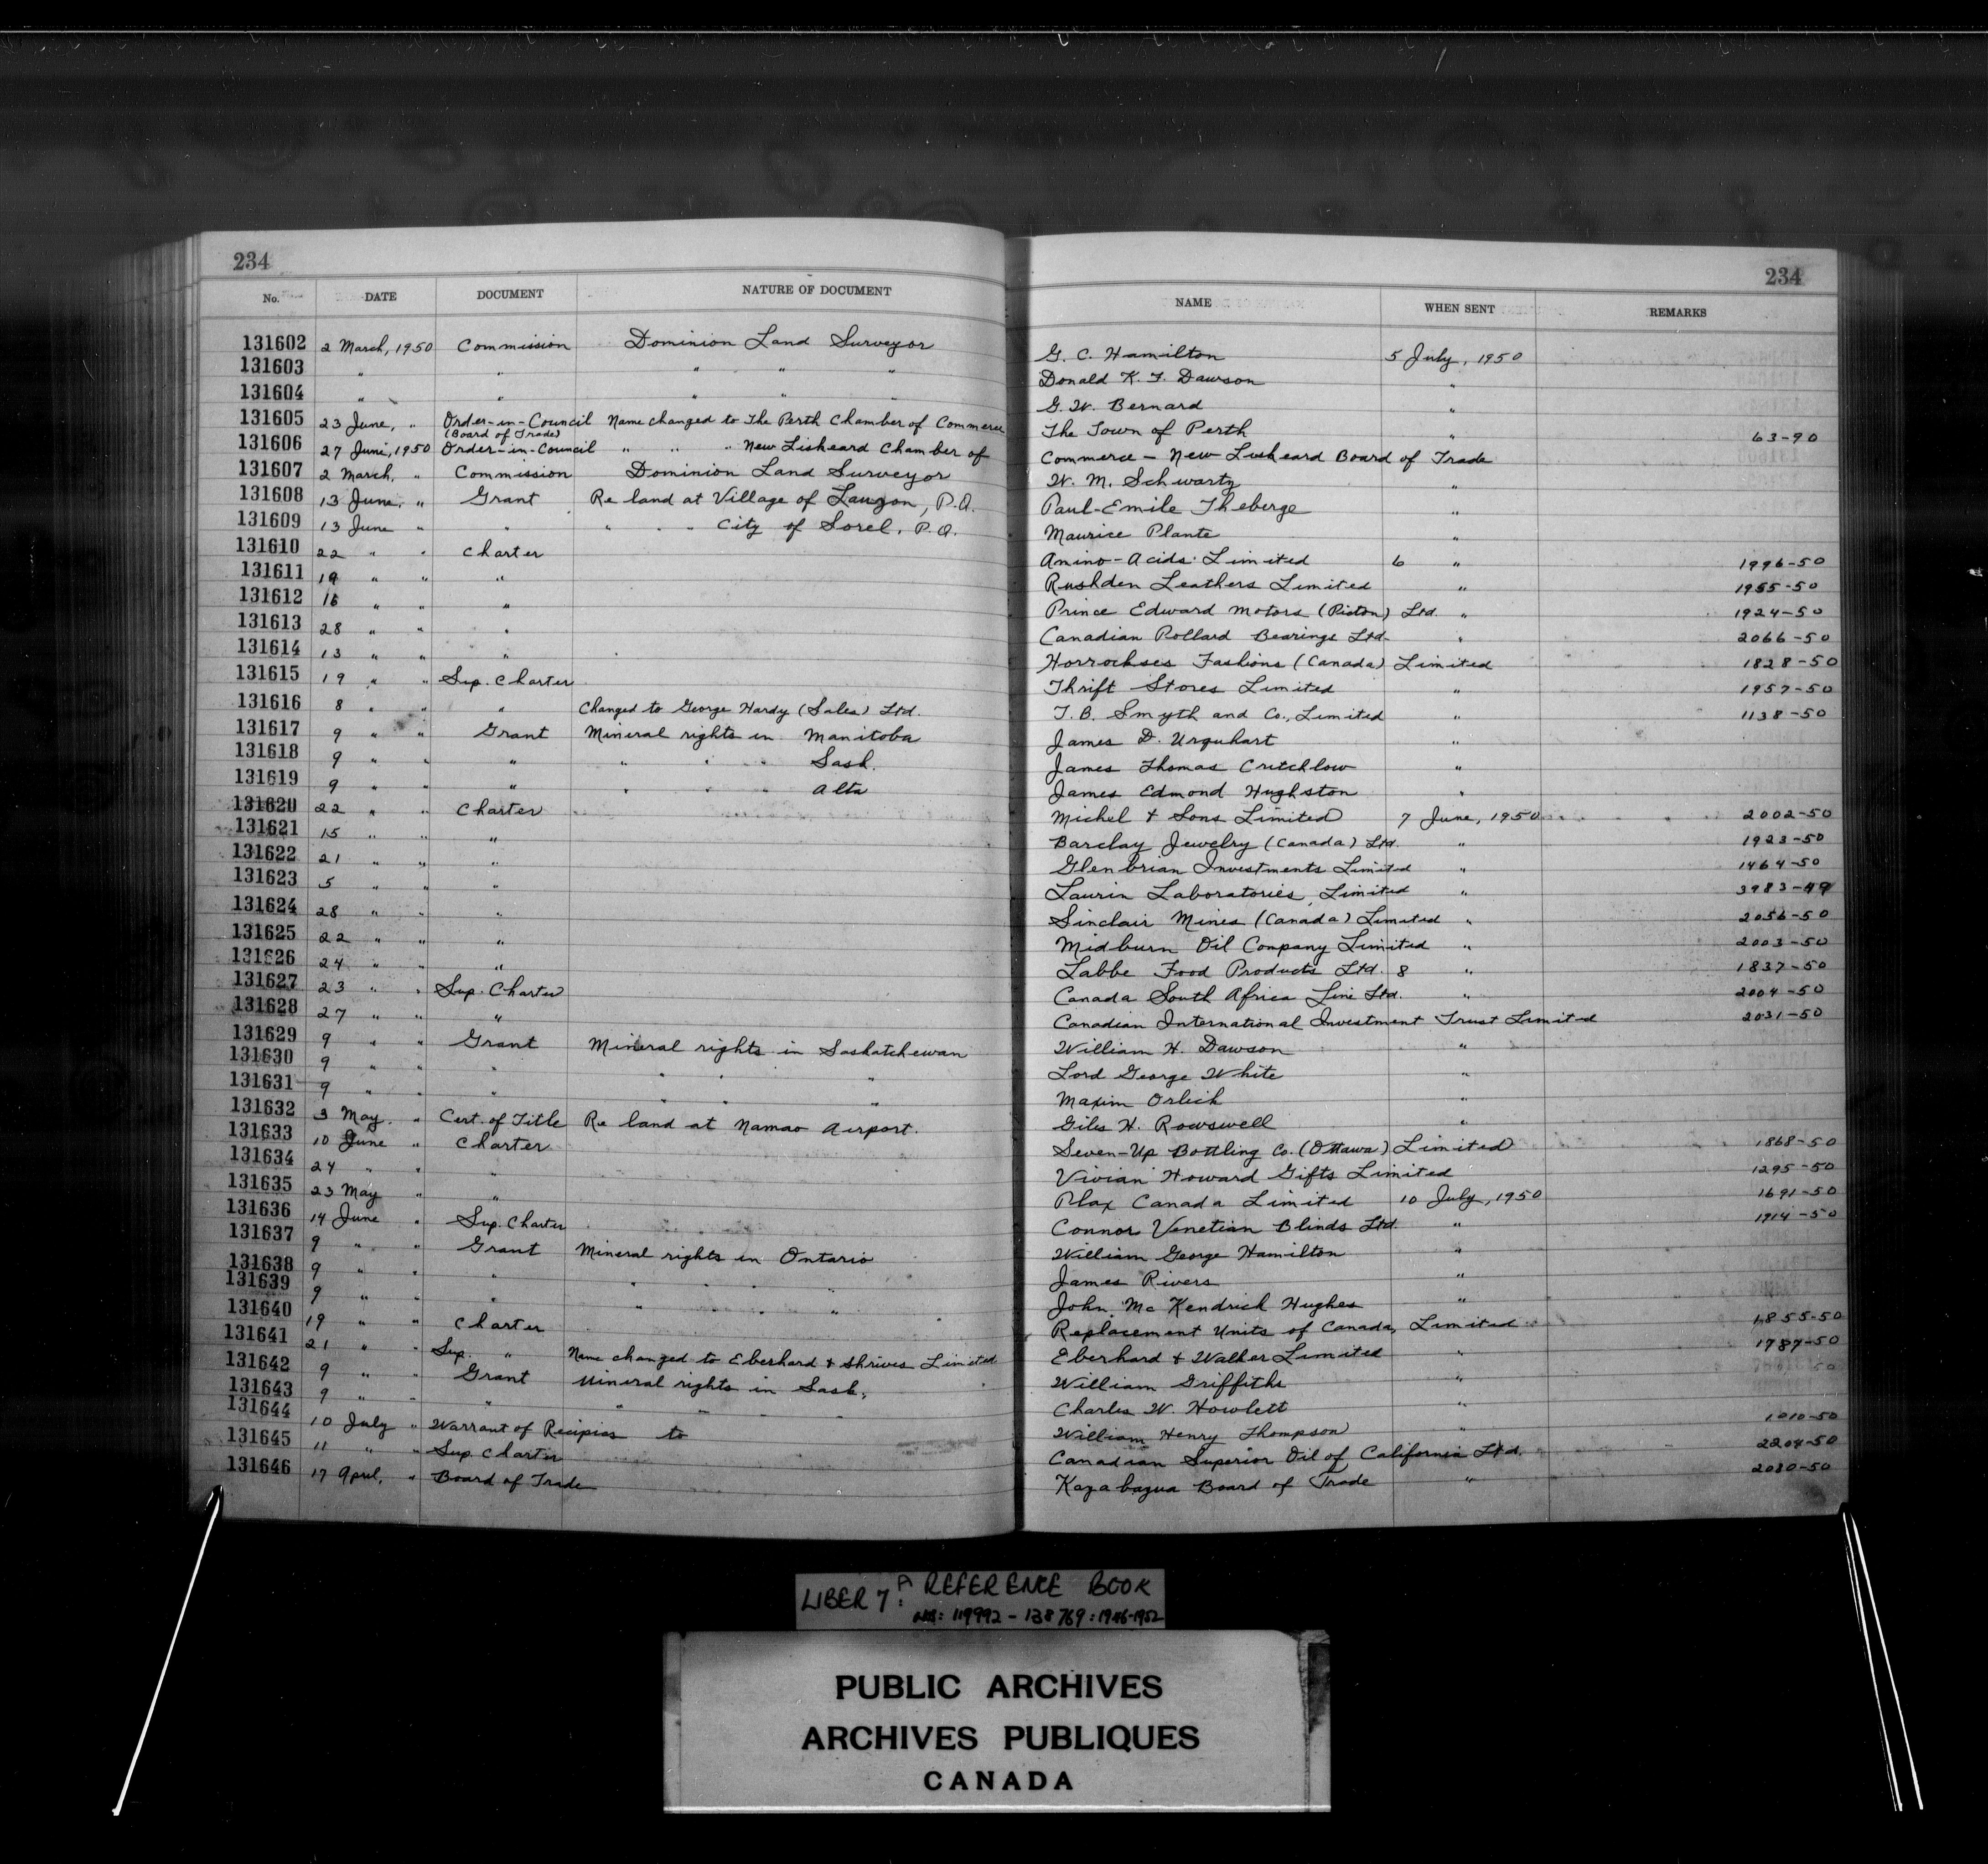 234
No. DATE DOCUMENT NATURE OF DOCUMENT
131602 2 March, 1950 Commission Dominion Land Surveyor
131603 " " " " "
131604 " " " " "
131605 23 June, " Order-in-Council Name changed to The Perth Chamber of Commerce
(Board of Trade)
131606 27 June, 1950 Order-in-Council " " " New Lisheard Chamber of
131607 2 March, " Commission Dominion Land Surveyor
131608 13 June, " Grant Re land at Village of Lauzon, P.Q.
131609 13 June " " " " " City of Sorel, P.Q.
131610 22 " " Charter
131611 19 " " "
131612 16 " " "
131613 28 " " "
131614 13 " " "
131615 19 " " Sup. Charter
131616 8 " " " Changed to George Hardy (Sales) Ltd.
131617 9 " " Grant Mineral rights in Manitoba
131618 9 " " " " " " Sask.
131619 9 " " " " " " Alta
131620 22 " " Charter
131621 15 " " "
131622 21 " " "
131623 5 " " "
131624 28 " " "
131625 22 " " "
131626 24 " " "
131627 23 " " Sup. Charter
131628 27 " " "
131629 9 " " Grant Mineral rights in Saskatchewan
131630 9 " " " " " "
131631 9 " " " " " "
131632 3 May " Cert. of Title Re land at Namao Airport.
131633 10 June " Charter
131634 24 " " "
131635 23 May " "
131636 14 June " Sup. Charter
131637 9 " " Grant Mineral rights in Ontario
131638 9 " " " " " " "
131639 9 " " " " " " "
131640 19 " " Charter
131641 21 " " Sup. " Name changed to Eberhard & Shrives Limited
131642 9 " " Grant Mineral rights in Sask.
131643 9 " " " " " " "
131644 10 July " Warrant of to
131645 11 " " Sup. Charter
131646 17 April, " Board of Trade
234
NAME WHEN SENT REMARKS
G. C. Hamilton 5 July, 1950
Donald K. F. Dawson "
G. W. Bernard "
The Town of Perth " 63-90
Commerce - New Lisheard Board of Trade
W. M. Schwartz "
Paul-Emile Theberge "
Maurice Plante "
Amino-Acids Limited 6 " 1996-50
Rushden Leathers Limited " 1955-50
Prince Edward Motors (Picton) Ltd. " 1924-50
Canadian Pollard Bearings Ltd. " 2066-50
Horrockses Fashions (Canada) Limited 1828-50
Thrift Stores Limited " 1957-50
T. B. Smyth and Co., Limited " 1138-50
James D. Urquhart "
James Thomas Critchlow "
James Edmond Hughston "
Michel & Sons Limited 7 June, 1950 2002-50
Barclay Jewelry (Canada) Ltd. " 1923-50
Glenbrian Investments Limited " 1464-50
Laurin Laboratories, Limited " 3983-49
Sinclair Mines (Canada) Limited " 2056-50
Midburn Oil Company Limited " 2003-50
Labbe Food Products Ltd. 8 " 1837-50
Canada South Africa Line Ltd. " 2004-50
Canadian International Investment Trust Limited 2031-50
William H. Dawson "
Lord George White "
Maxim Orleik "
Giles H. Rowswell "
Seven-Up Bottling Co. (Ottawa) Limited 1868-50
Vivian Howard Gifts Limited 1295-50
Plax Canada Limited 10 July, 1950 1691-50
Connor Venetian Blinds Ltd. " 1914-50
William George Hamilton "
James Rivers "
John McKendrick Hughes "
Replacement Units of Canada, Limited 1855-50
Eberhard & Walker Limited " 1787-50
William Griffiths "
Charles W. Howlett "
William Henry Thompson " 1010-50
Canadian Superior Oil of California Ltd. 2204-50
Kazabazua Board of Trade " 2080-50
LIBER 7A: REFERENCE BOOK
NOS: 119992 - 138769: 1946-1952
PUBLIC ARCHIVES
ARCHIVES PUBLIQUES
CANADA